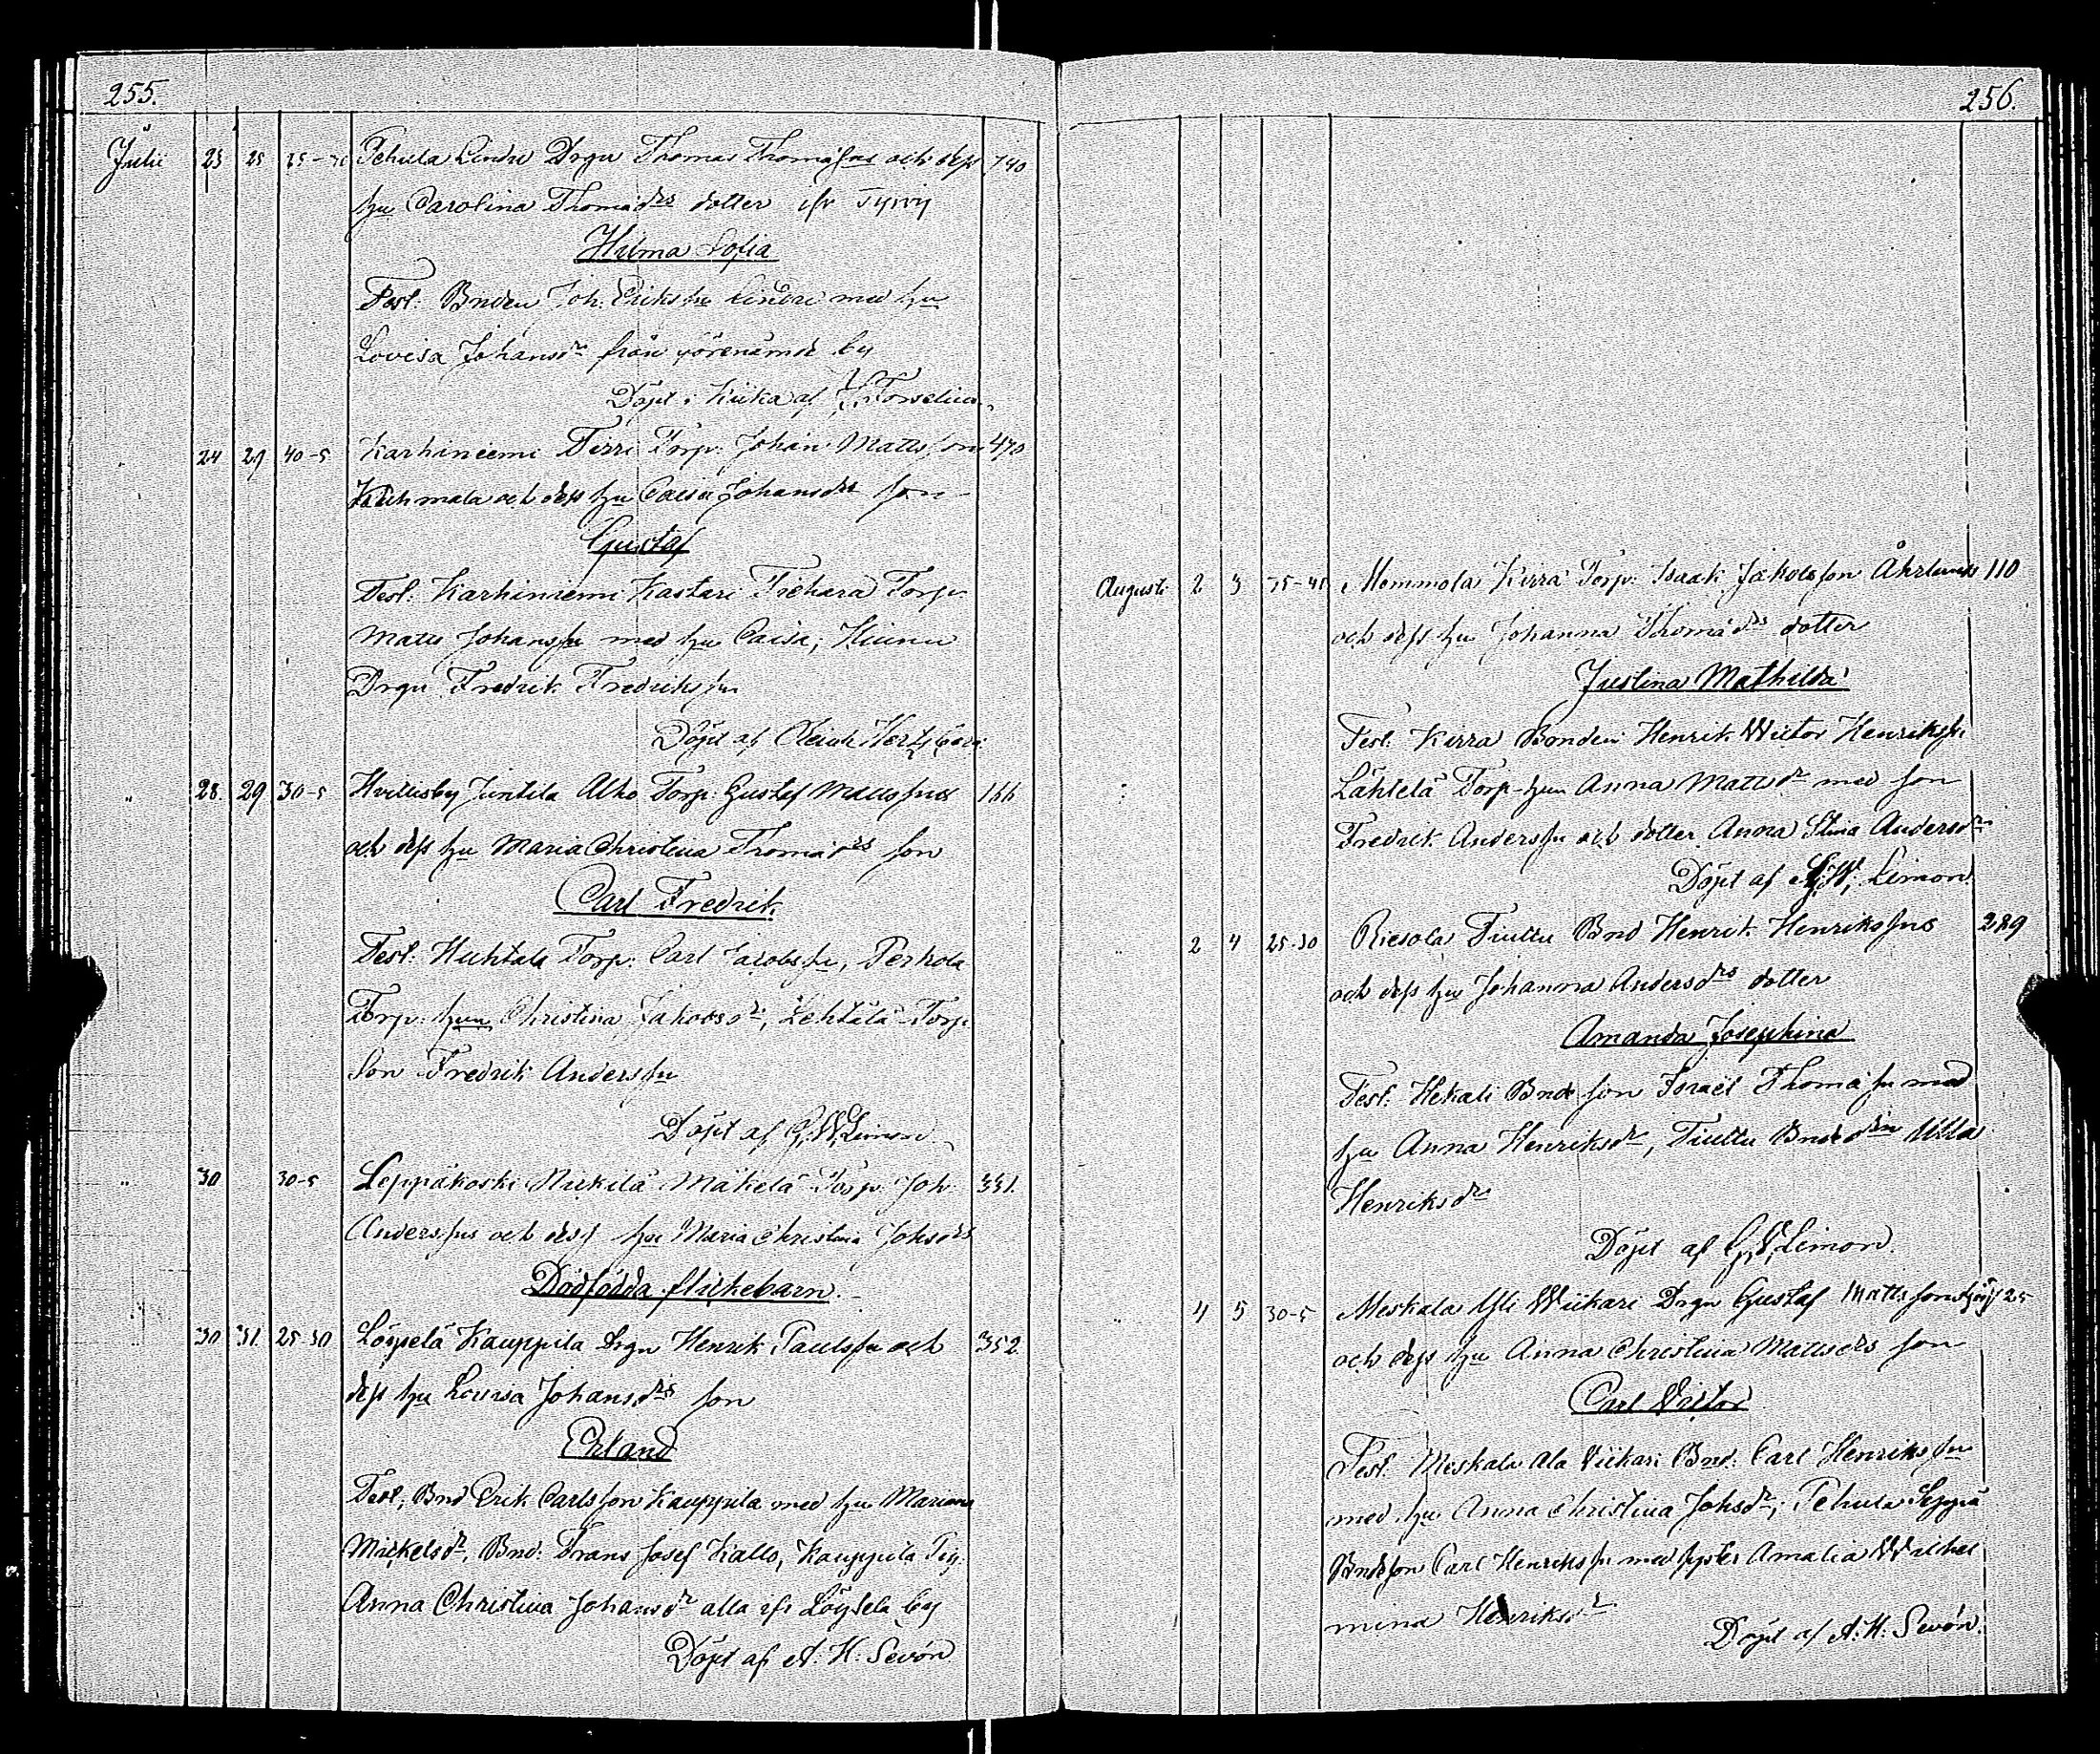 255.
Julii 23 25 25-30 Pehula Lindri Drgn Thomas Thomasfns och defs 740
hu Carolina Thomædrs dotter ifr Tyrvy
Hilma Sofia
Test: Bnden Joh. Eriksfn Lindri med hu
Lovisa Johansdr från förenämde by
Döpt i Kiika af Forselius
" 24 29 40-5 Karhiniemi Tirri Torp. Johan Mattsfons 470
och defs hu Caisa Johansdrs fon
Gustaf
Test: Karhiniemi Kastari Torpn
Matts Johansfn med hu Caisa,
Drgn Fredrik Fredriksfn
Döpt af Hertzberg
" 28. 29 30-5 Hvittisby Juntila Alho Torp. Gustaf Mattsfns 166
och defs hu Maria Christina Thomædrs fon
Carl Fredrik
Test: Huhtala Torp: Carl Jacobsfn, Perhola
Torp: hun Christina Jakobsdr, Lehtälä Torp.
Son Fredrik Andersfn
Döpt af G.W. Limon
" 30 30-5 Leppäkoski Nickilä Mäkelä Torp. Joh. 331.
Andersfns och defs hu Maria Christina Johsdrs
Dödfödda flickebarn.
" 30 31. 25-30 Löysela Kauppila Drgn Henrik Paulsfn och 352
defs hu Lovisa Johansdrs fon
Erland
Test, Bnd Erik Carlsfon Kauppila med hu Mariana
Mickelsdr, Bnd: Frans Josef Kallo, Kauppila Pig.
Anna Christina Johansdr alla ifr Löysela by
Döpt af A. H. Sevón
256.
Augusti 2 3 35-40 Mommola Kirra Torp: Isaak Jakobsfon Åhrlunds 110
och defs hu Johanna Thomædrs dotter
Justina Mathilda
Test. Kirra Bonden Henrik Wictor Henriksfn
Lähtelä Torp-hun Anna Mattsdr med fon
Fredrik Andersfn och dotter Anna Stina Andersdr
Döpt af G.W. Limon.
" 2 4 25-30 Riesola Tiuttu Bnd Henrik Henriksfns 289
och defs hu Johanna Andersdrs dotter
Amanda Josephina
Test. Hekali Bnde fon Israël Thomæfn med
hu Anna Henriksdr, Tiuttu Bnde drn Ulla
Henriksdr
Döpt af G.W. Limon.
" 4 5 30-5 Meskala Yli Wiikari Drgn Gustaf Mattsfon 125
och defs hu Anna Christina Mattsdrs fon
Carl Victor
Test. Meskala Ala Viikari Bnd: Carl Henriksfn
med hu Anna Christina Johsdr; Pehula Seppä
Bndefon Carl Henriksfn med fyster Amalia Wilhel
mina Henriksdr
Döpt af A. H. Sevón.